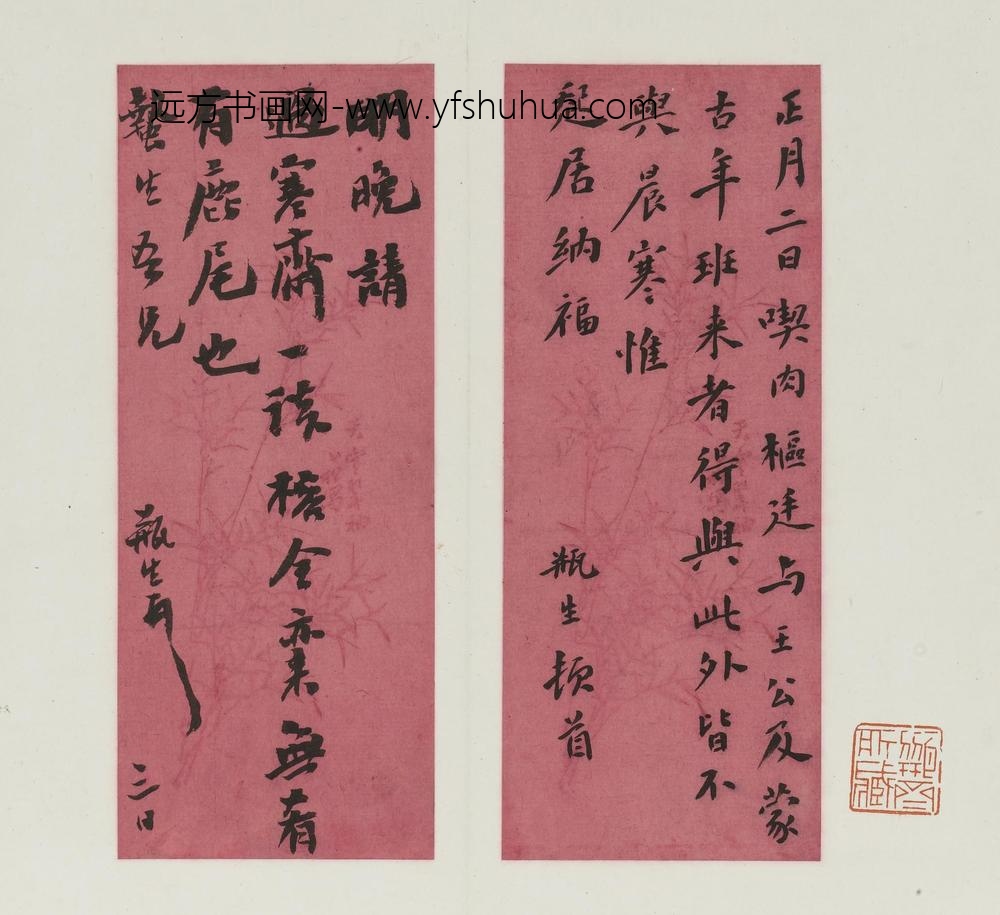 正月二日喫肉樞廷与王公及蒙
古年班来者得與此外皆不
與晨寒惟
起居納福
瓶生頓首
明晚請
過寒齋一談令亦来無肴
有鹿尾也
蟄生吾兄
瓶生
三日
所藏
远方书画网-www.yfshuhua.com